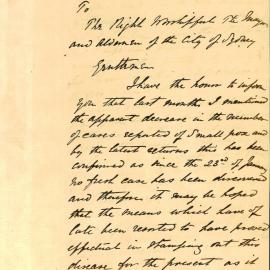 To
The Right Worshipful The Mayor
and Aldermen of the City of Sydney
Gentlemen
I have the honor to inform
you that last month I mentioned
the apparent decrease in the number
of cases reported of Small pox and
by the latest returns this has been
confirmed as since the 23rd of January
no fresh case has been discovered
and therefore it may be hoped
that the means which have of
late been resorted to have proved
effectual in stamping out this
disease for the present as it